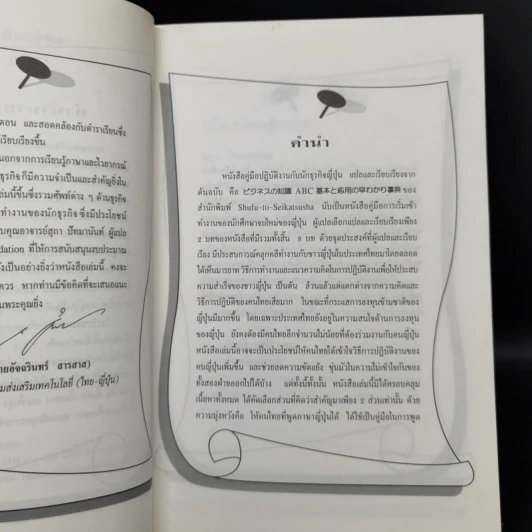 ตอน และสอดคล้องกับตำราเรียนซึ่ง
เรียบเรียงขึ้น
นอกจากการเรียนรู้ภาษาและไวยากรณ์
ธุรกิจ ก็มีความจำเป็นและสำคัญยิ่งใน
เล่มนี้ขึ้นซึ่งรวมศัพท์ต่าง ๆ ด้านธุรกิจ
ทำงานของนักธุรกิจ ซึ่งมีประโยชน์
บคุณอาจารย์สุภา ปัทมานันท์ ผู้แปล
dation ที่ให้การสนับสนุนงบประมาณ
ังเป็นอย่างยิ่งว่าหนังสือเล่มนี้ คงจะ
ควร หากท่านมีข้อคิดที่จะเสนอแนะ
นพระคุณยิ่ง
ายอัจฉรินทร์ สารสาส)
มส่งเสริมเทคโนโลยี (ไทย-ญี่ปุ่น)
คำนำ
หนังสือคู่มือปฏิบัติงานกับนักธุรกิจญี่ปุ่น แปลและเรียบเรียงจาก
ต้นฉบับ คือ ビジネスの知識 ABC 基本と応用の早わかり事典 ของ
สำนักพิมพ์ Shufu-to-Seikatsusha นับเป็นหนังสือคู่มือการเริ่มเข้า
ทำงานของนักศึกษาจบใหม่ของญี่ปุ่น ผู้แปลเลือกแปลและเรียบเรียงเพียง
๒ บทของหนังสือที่มีรวมทั้งสิ้น ๑ บท ด้วยจุดประสงค์ที่ผู้แปลและเรียบ
เรียง มีประสบการณ์คลุกคลีทำงานกับชาวญี่ปุ่นในประเทศไทยมาโดยตลอด
ได้เห็นมารยาท วิธีการทำงานและแนวความคิดในการปฏิบัติงานเพื่อให้ประสบ
ความสำเร็จของชาวญี่ปุ่น เป็นต้น ล้วนแล้วแต่แตกต่างจากความคิดและ
วิธีการปฏิบัติของคนไทยเสียมาก ในขณะที่กระแสการลงทุนข้ามชาติของ
ญี่ปุ่นมีมากขึ้น โดยเฉพาะประเทศไทยยังอยู่ในความสนใจด้านการลงทุน
ของญี่ปุ่น ยังคงต้องมีคนไทยอีกจำนวนไม่น้อยที่ต้องร่วมงานกับคนญี่ปุ่น
หนังสือเล่มนี้อาจจะเป็นประโยชน์ให้คนไทยได้เข้าใจวิธีการปฏิบัติงานของ
คนญี่ปุ่นเพิ่มขึ้น และช่วยลดความขัดแย้ง ขุ่นมัวในความไม่เข้าใจกันของ
ทั้งสองฝ่ายออกไปได้บ้าง แต่ทั้งนี้ทั้งนั้น หนังสือเล่มนี้มิได้ครอบคลุม
เนื้อหาทั้งหมด ได้คัดเลือกส่วนที่คิดว่าสำคัญมาเพียง ๒ ส่วนเท่านั้น ด้วย
ความมุ่งหวังคือ ให้คนไทยที่พูดภาษาญี่ปุ่นได้ ได้ใช้เป็นคู่มือในการพูด